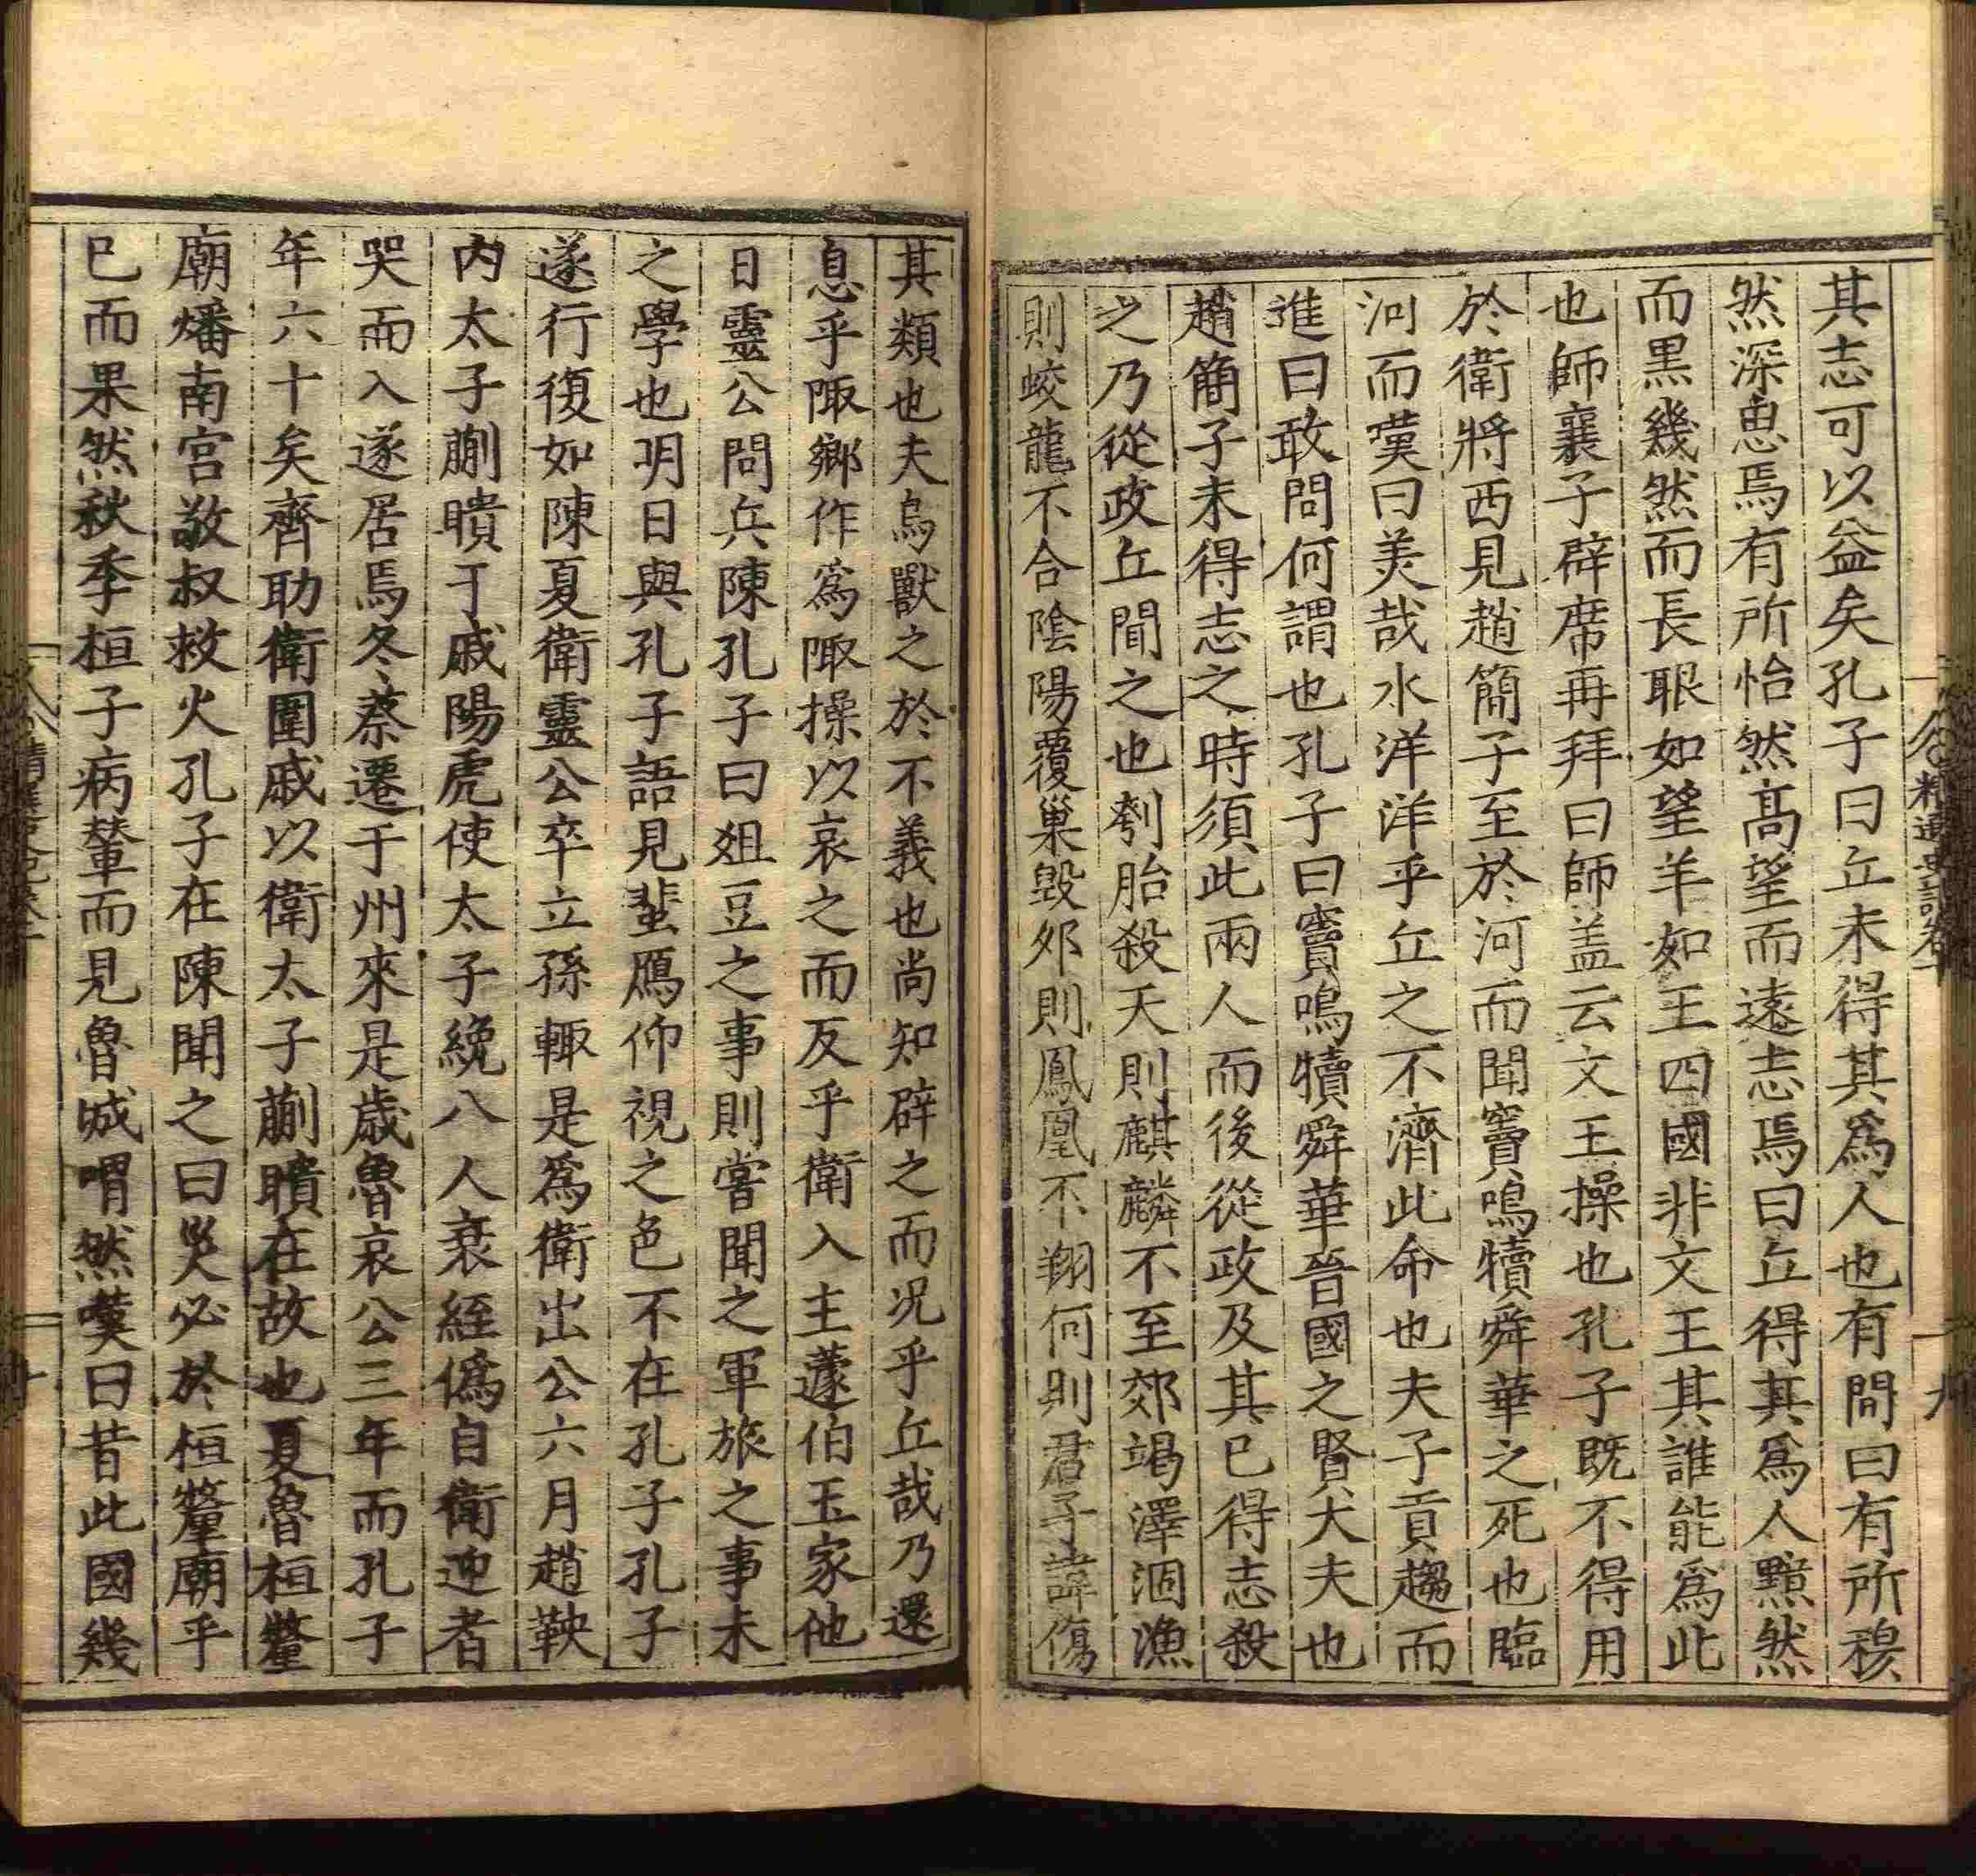 其志可以益矣孔子曰丘未得其爲人也有間曰有所穆
然深思焉有所怡然髙望而遠志焉曰丘得其爲人黯然
而黒幾然而長眼如望羊如王四國非文王其誰能爲此
也師襄子辟席再拜曰師盖云文王操也孔子既不得用
於衛將西見趙簡子至於河而聞竇鳴犢舜華之死也臨
河而嘆曰美哉水洋洋乎丘之不濟此命也夫子貢趨而
進曰敢問何謂也孔子曰竇鳴犢舜華晉國之賢大夫也
趙簡子未得志之時須此兩人而後從政及其已得志殺
之乃從政丘聞之也刳胎殺夭則麒麟不至郊竭澤涸漁
則蛟龍不合陰陽覆巢毁夘則鳳凰不翔何則君子諱傷
其類也夫鳥獸之於不義也尚知辟之而况乎丘哉乃還
息乎陬鄉作爲陬操以哀之而反乎衛入主蘧伯玉家他
日靈公問兵陳孔子曰俎豆之事則嘗聞之軍旅之事未
之學也明日與孔子語見蜚鴈仰視之色不在孔子孔子
遂行復如陳夏衛靈公卒立孫輒是爲衛出公六月趙鞅
内太子蒯聵于戚陽虎使太子絻八人衰絰僞自衛迎者
哭而入遂居焉冬蔡遷于州來是歲魯哀公三年而孔子
年六十矣齊助衛圍戚以衛太子蒯聵在故也夏魯桓釐
廟燔南宫敬叔救火孔子在陳聞之曰災必於桓釐廟乎
已而果然秋季桓子病輦而見魯城喟然嘆曰昔此國幾